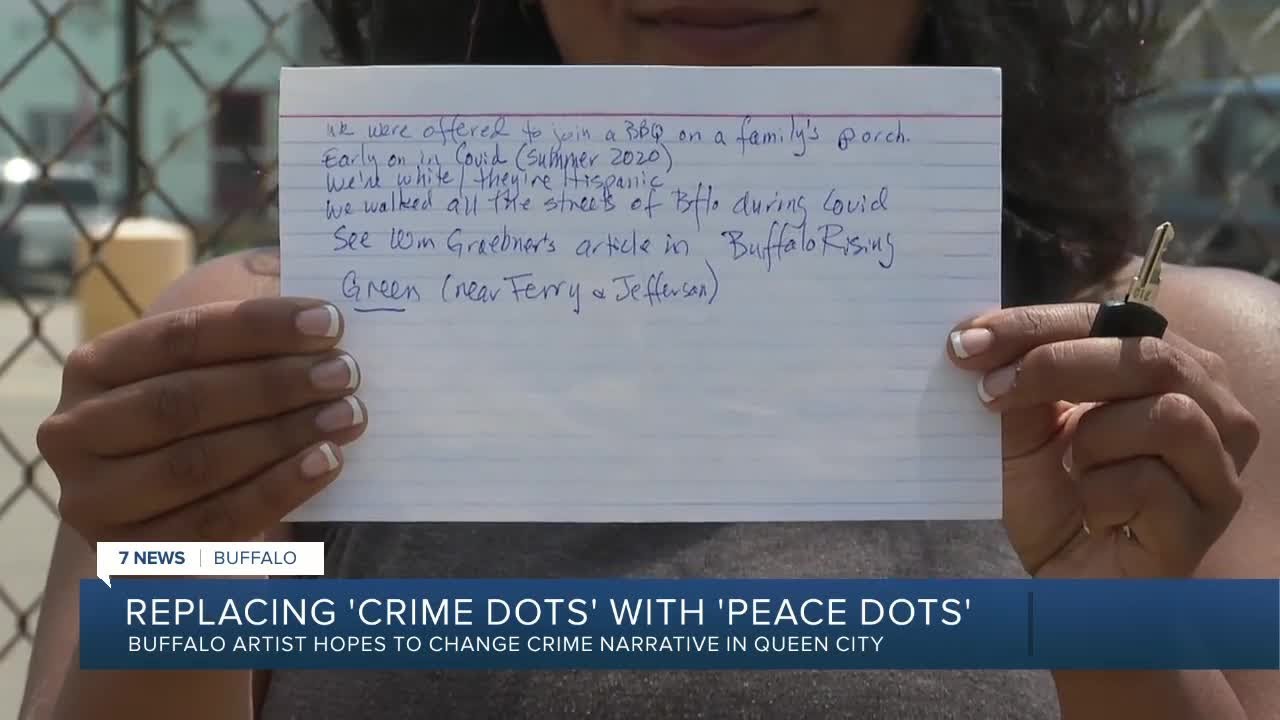 We were offered to join a BBQ on a family's porch.
Early on in Covid (Summer 2020)
We're white / they're Hispanic
We walked all the streets of Bflo during Covid
See Wm Graebner's article in Buffalo Rising
Green (near Ferry & Jefferson)
7 NEWS | BUFFALO
REPLACING 'CRIME DOTS' WITH 'PEACE DOTS'
BUFFALO ARTIST HOPES TO CHANGE CRIME NARRATIVE IN QUEEN CITY